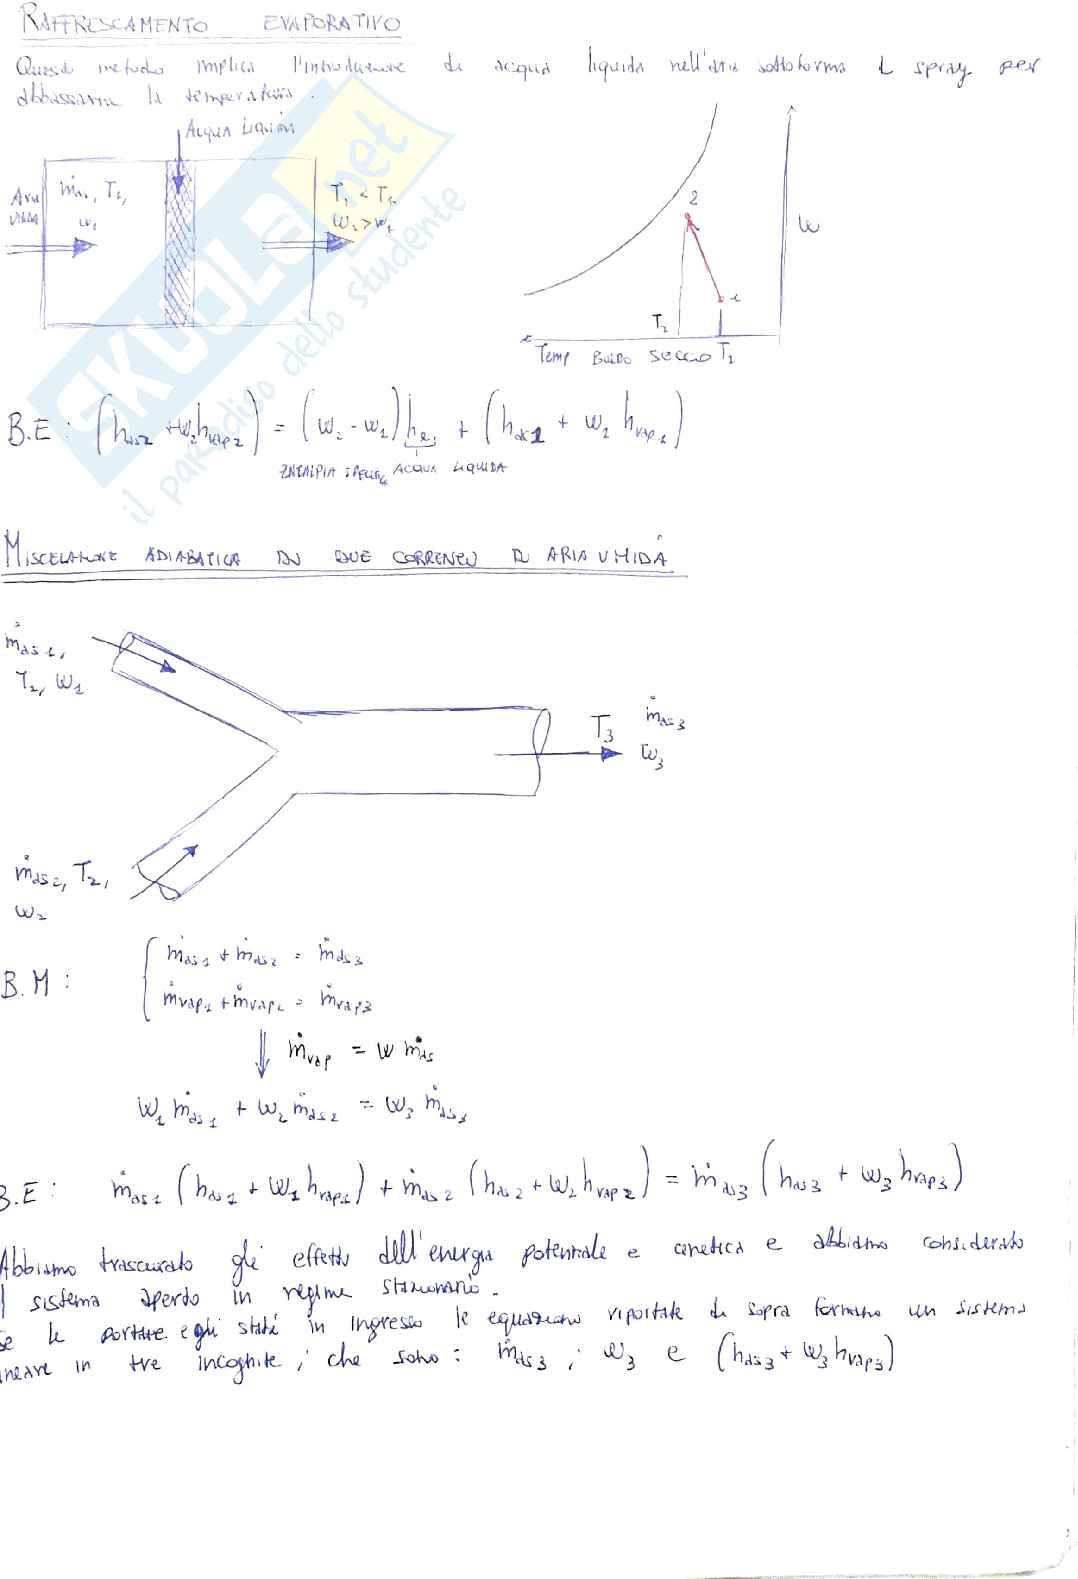 RAFFRESCAMENTO EVAPORATIVO
Questo metodo implica l'introduzione di acqua liquida nell'aria sottoforma di spray per
abbassarne la temperatura.
ACQUA LIQUIDA
ARIA
UMIDA
ṁas, T1,
w1
T1 < T1
w2 > w1
2
1
w
T2
TEMP BULBO SECCO T1
B.E: (has2 + w2 hvap2) = (w2 - w1) he, + (has1 + w1 hvap1)
ENTALPIA SPECIFICA ACQUA LIQUIDA
MISCELAZIONE ADIABATICA DI DUE CORRENTI DI ARIA UMIDA
ṁas1,
T2, w1
T3
ṁas3
w3
ṁas2, T2,
w2
B.M:
ṁas1 + ṁas2 = ṁas3
ṁvap1 + ṁvap2 = ṁvap3
ṁvap = w ṁas
w1 ṁas1 + w2 ṁas2 = w3 ṁas3
B.E: ṁas1 (has1 + w1 hvap1) + ṁas2 (has2 + w2 hvap2) = ṁas3 (has3 + w3 hvap3)
Abbiamo trascurato gli effetti dell'energia potenziale e cinetica e abbiamo considerato
l sistema aperto in regime stazionario.
se le portate e gli stati in ingresso le equazioni riportate di sopra formano un sistema
ineare in tre incognite, che sono: ṁas3, w3 e (has3 + w3 hvap3)
SKUOLA.net
il paradiso dello studente